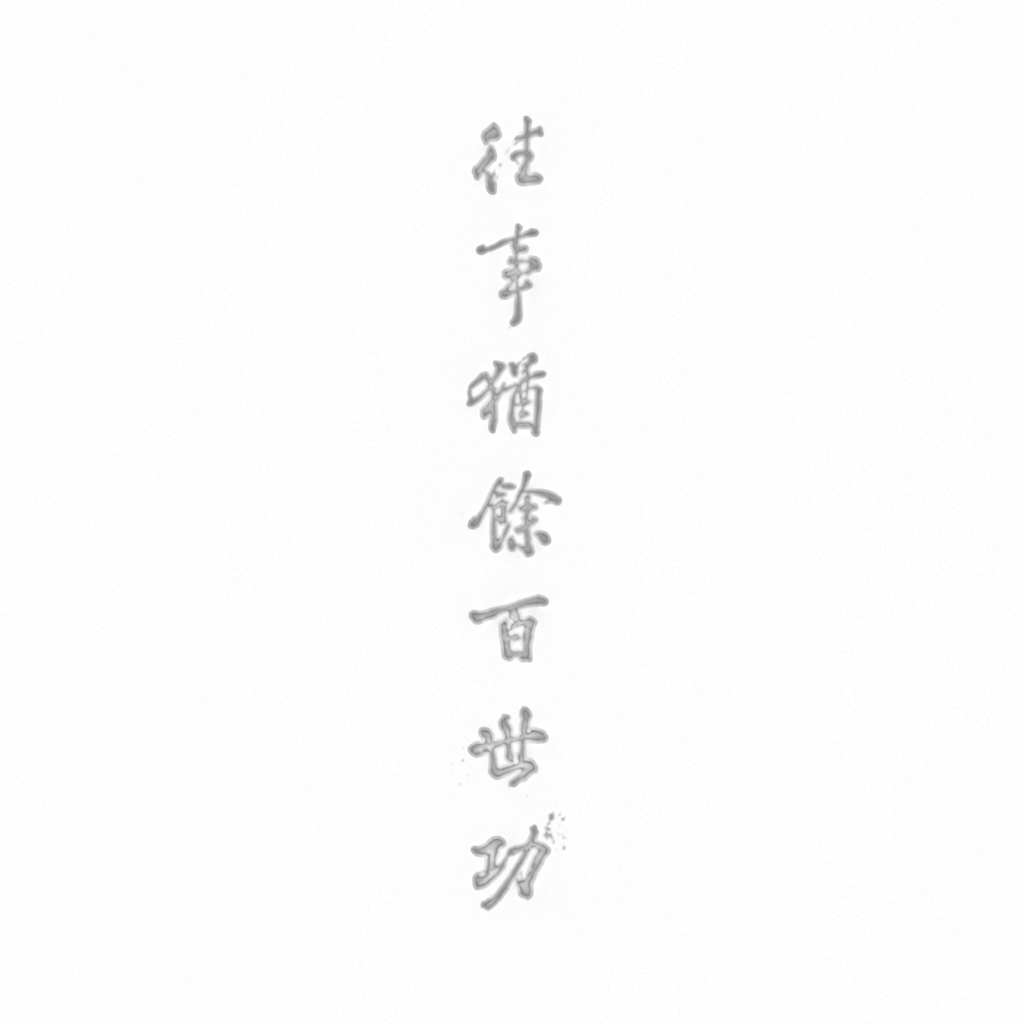 往事猶餘百世功